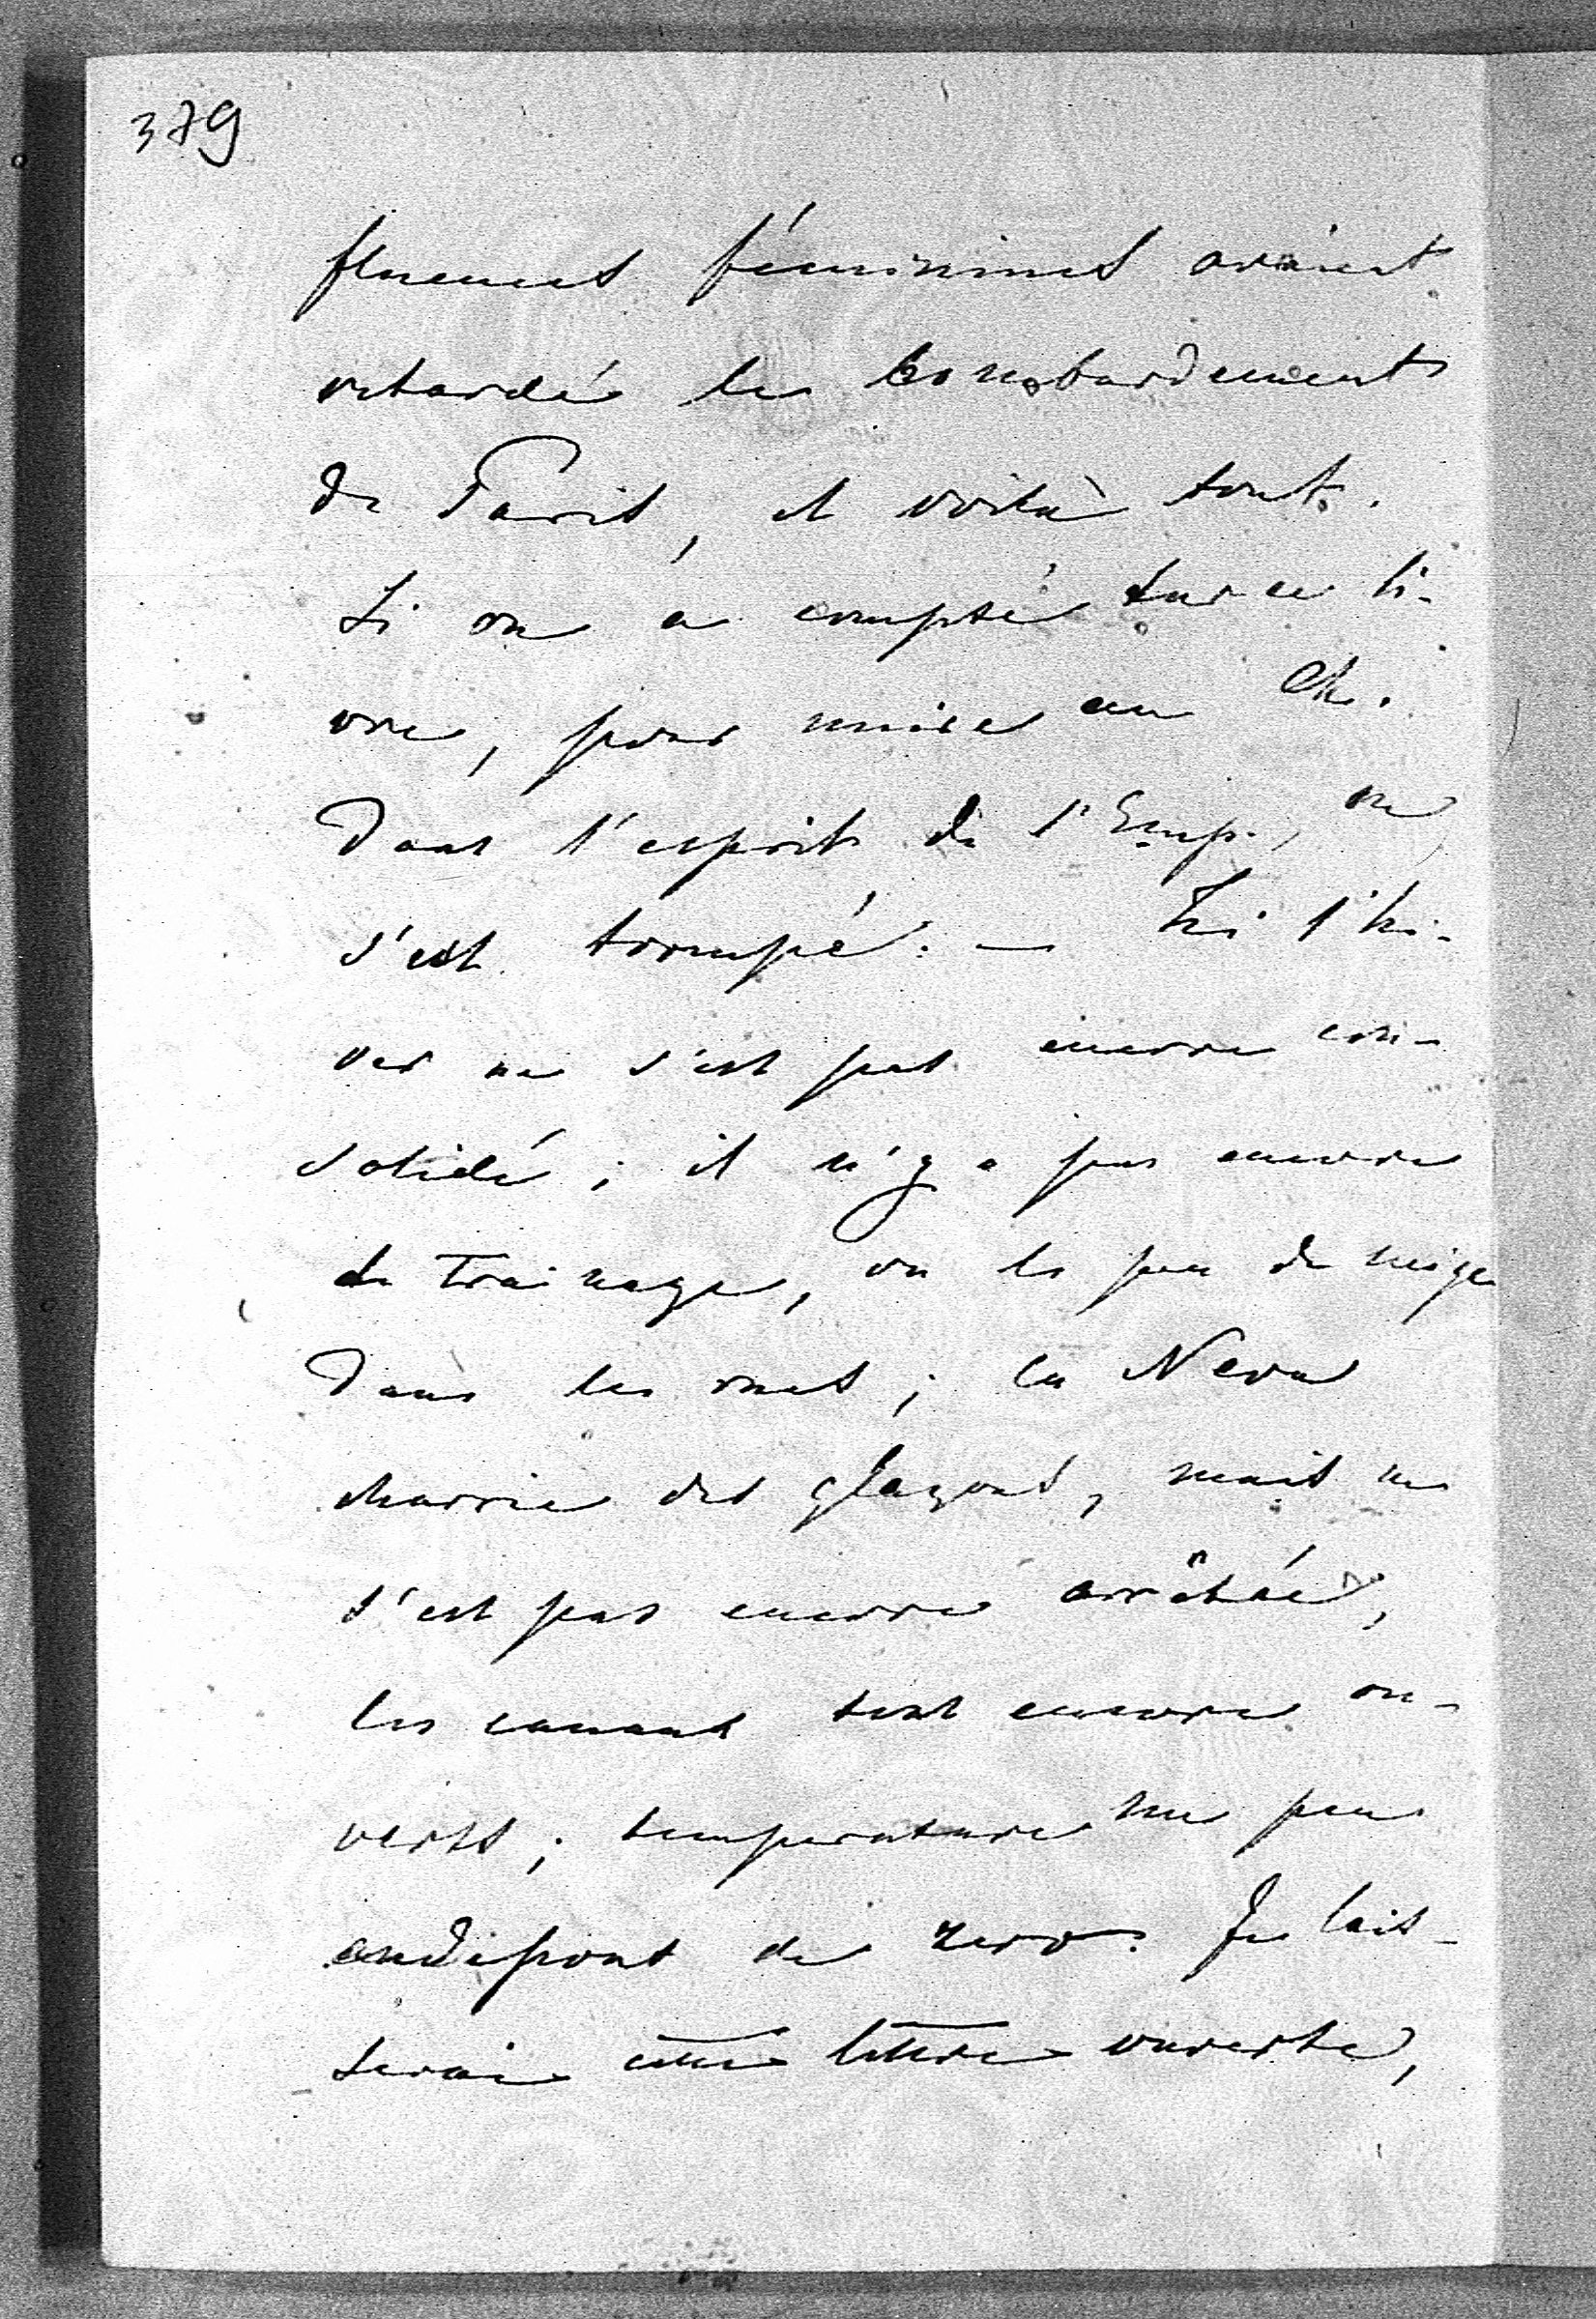 379
fluences féminines avaient
retardé le bombardement
de Paris, et voilà tout.
Si on a compté sur ce li-
vre, pour nuire au Ch.
dans l'esprit de l'Emp., on
s'est trompé. — Ici l'hi-
ver ne s'est pas encore con-
solidé; il n'y a pas encore
de trainage, vu le peu de neige
dans les rues; la Neva
charrie des glaçons, mais ne
s'est pas encore arrêtée,
les canaux sont encore ou-
verts; temperature un peu
audessous de zero. Je lais-
serai cette lettre ouverte,